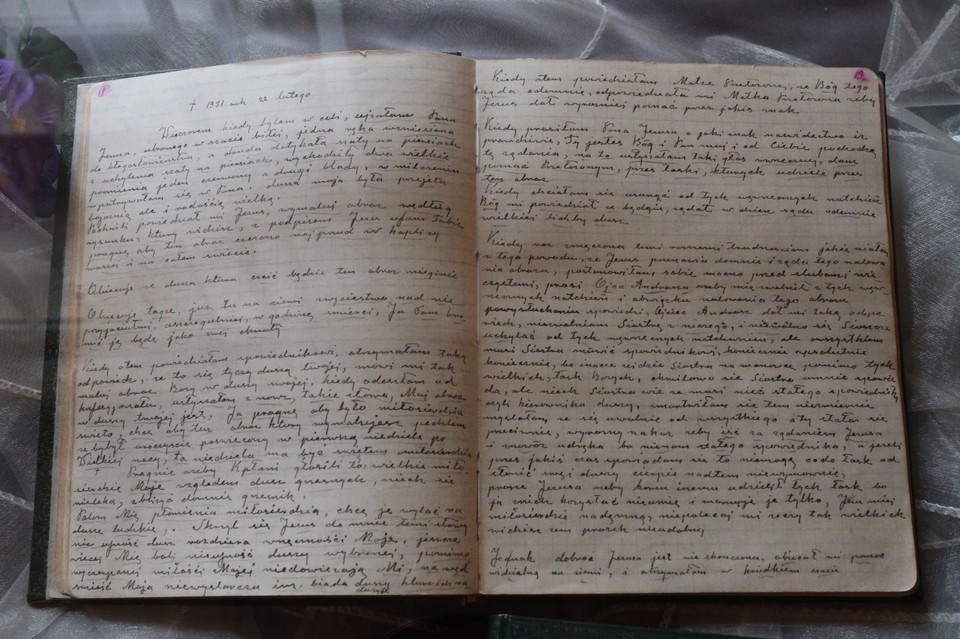 † 1931 rok 22 lutego
Wieczorem kiedy byłam w celi, ujrzałam Pana
Jezusa, ubranego w szacie białej, jedna ręka wzniesiona
do błogosławieństwa, a druga dotykała szaty na piersiach
z uchylenia szaty na piersiach, wychodziły dwa wielkie
promienia jeden czerwony a drugi blady, w milczeniu
wpatrywałam się w Pana. dusza moja była przejęta
bojaźnią ale i radością wielką.
powiedział mi Jezus, wymaluj obraz według
rysunku, który widzisz, z podpisem Jezu ufam Tobie
pragnę aby ten obraz czczono najprzód w kaplicy
waszej i na całem świecie.
Obiecuję że dusza która czcić będzie ten obraz nie zginie
Obiecuję także, już tu na ziemi zwycięstwo nad nie
przyjaciółmi, a szczególniej, w godzinę śmierci, Ja Sam bro
nić ją będę jako swej chwały
Kiedy o tem powiedziałam spowiednikowi, otrzymałam taką
odpowiedź, że to się tyczy duszy twojej, mówi mi tak
maluj obraz Boży w duszy swojej, kiedy odeszłam od
usłyszałam z nowu, takie słowa, Mój obraz
w duszy twojej jest, Ja pragnę aby było miłosierdzia
święto, chcę aby ten obraz który wymalujesz pędzlem
żeby był uroczyście poświęcony w pierwszą niedzielę po
Wielkiej nocy, ta niedziela ma być świętem miłosierdzia,
Pragnę żeby Kapłani głosili to wielkie miło
sierdzie Moje względem dusz grzesznych, niech się
nielęka, zbliżyć domnie grzesznik.
Palom Mię płomienia miłosierdzia, chcę je wylać na
dusze ludzkie, . Skarżył się Jezus do mnie temi słowy
nie ufność dusz rozdziera wnętrzności Moje, jeszcze
więcej Mię boli nieufność duszy wybranej, pomimo
wyczerpanej miłości Mojej niedowierzają Mi, na wet
śmierć Moja niewystarcza im. biada duszy która ich na
13.
Kiedy otem powiedziałam Matce Przełożonej, że Bóg tego
żąda odemnie, odpowiedziała mi Matka Przełożona żeby
Jezus dał wyraźniej poznać przez jakiś znak
Kiedy prosiłam Pana Jezusa o jaki znak na świadectwo iż
prawdziwie, Ty jesteś Bóg i Pan mój i od Ciebie pochodzą
te żądania, na to usłyszałam taki głos wewnęczny, dam
poznać Przełożonym, przez łaski, których udzielę przez
ten obraz
Kiedy chciałam się usunąć od tych wewnęcznych natchnień
Bóg mi powiedział że będzie, żądał w dzień sądu odemnie
wielkiej liczby dusz.
Kiedy raz zmęczona temi trudnościami jakie miałam
z tego powodu, że Jezus przemawia domnie i żąda tego malowa
nia obrazu, postanowiłam sobie mocno przed ślubami wie
czystemi, prosić Ojca Andrasza żeby mię zwolnił z tych wew
nęcznych natchnień i obowiązku malowania tego obrazu
powysłuchaniu spowiedzi, Ojciec Andrasz dał mi taką odpo
wiedź, niezwalniam Siostrę z niczego, i niewolno się Siostrze
uchylać od tych wewnęcznych natchnieniom, ale owszystkiem
musi Siostra mówić spowiednikowi, koniecznie absolutnie
koniecznie, bo inaczej zejdzie Siostra na manowce pomimo tych
wielkich, łask Bożych, chwilowo się Siostra umnie spowia
da, ale niech Siostra wie że musi mieć stałego spowiednika
czyli kierownika duszy, zmartwiłam się tem niezmiernie
myślałam, że się uwolnię od wszystkiego a tu stało się
przeciwnie, wyraźny nakaz żeby iść za żądaniem Jezusa
i znowóż udręka bo niema stałego spowiednika
przez jakiś czas spowiadam się to niemogę co do łask od
słonić swej duszy, cierpię nadtem niewymownie,
proszę Jezusa żeby komu innemu udzielił tych łask bo
ja niech korzystać nieumię i marnuję je tylko, Jezu miej
miłosierdzie nademną, niepolecaj mi rzeczy tak wielkich
widzisz żem proch nieudolny,
Jednak dobroć Jezusa jest nie skończona, obiecał mi pomoc
widzialną na ziemi, i otrzymałam w krótkiem czasie